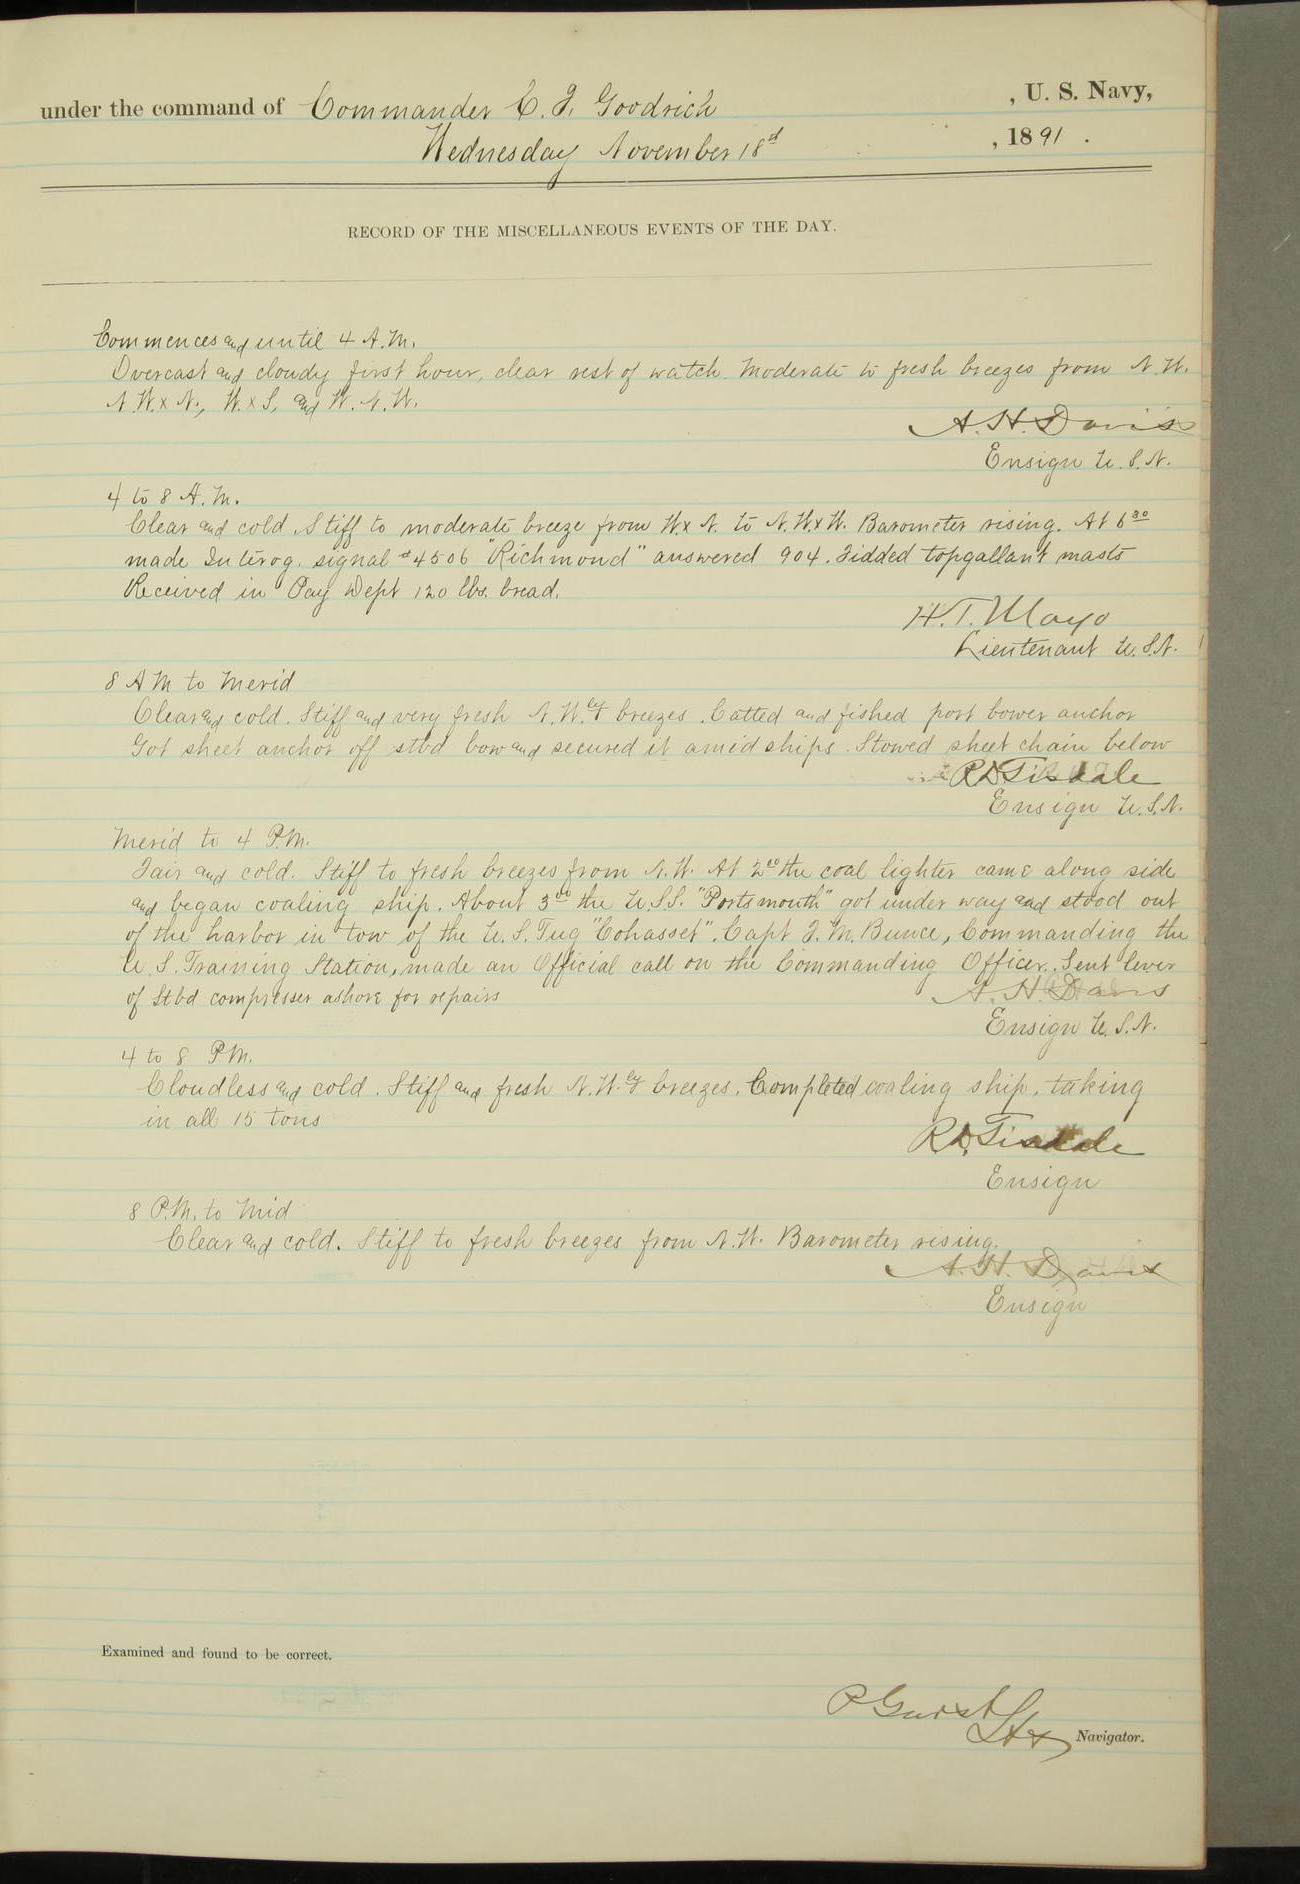 under the command of Commander C. F. Goodrich, U. S. Navy,
Wednesday November 18th, 1891.
RECORD OF THE MISCELLANEOUS EVENTS OF THE DAY.
Commences and until 4 A.M.
Overcast and cloudy first hour, clear rest of watch. Moderate to fresh breezes from N.W.
N.W.x N., W.x S, and W.N.W.
A. H. Davis
Ensign U.S.N.
4 to 8 A.M.
Clear and cold. Stiff to moderate breeze from W.x N. to N.W.x W. Barometer rising. At 6 30
made Interog. signal #4506 "Richmond" answered 904. Fidded topgallant masts
Received in Pay Dept 120 lbs. bread.
H. T. Mayo
Lieutenant U.S.N.
8 AM to Merid
Clear and cold. Stiff and very fresh N.W.ly breezes. Catted and fished port bower anchor
Got sheet anchor off stbd bow and secured it amidships. Stowed sheet chain below
R D Tisdale
Ensign U.S.N.
Merid to 4 P.M.
Fair and cold. Stiff to fresh breezes from N.W. At 2 00 the coal lighter came along side
and began coaling ship. About 3 00 the U.S.S. "Portsmouth" got under way and stood out
of the harbor in tow of the U.S. Tug "Cohasset". Capt F. M. Bunce, Commanding the
U.S. Training Station, made an Official call on the Commanding Officer. Sent lever
of Stbd compresser ashore for repairs
A. H. Davis
Ensign U.S.N.
4 to 8 P.M.
Cloudless and cold. Stiff and fresh N.W.ly breezes. Completed coaling ship, taking
in all 15 tons
R D. Tisdale
Ensign
8 P.M. to Mid
Clear and cold. Stiff to fresh breezes from N.W. Barometer rising.
A. H. Davis
Ensign
Examined and found to be correct.
Navigator.